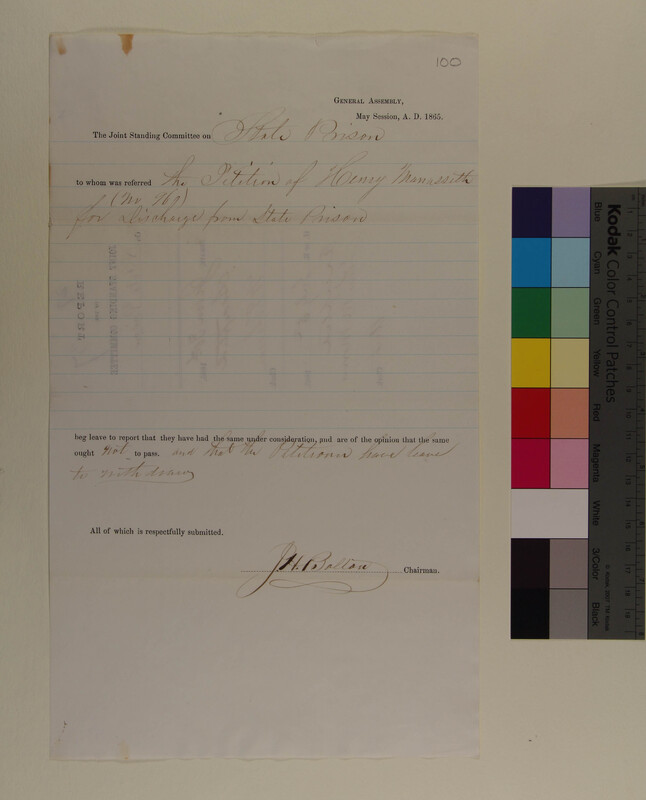 100
GENERAL ASSEMBLY,
May Session, A. D. 1865.
The Joint Standing Committee on State Prison
to whom was referred the Petition of Henry Manasseth
(No 769)
for Discharge from State Prison
REPORT
JOINT STANDING COMMITTEE
beg leave to report that they have had the same under consideration, and are of the opinion that the same
ought not to pass. and that the Petitioner have leave
to withdraw
All of which is respectfully submitted.
J. H. Bolton Chairman.
Kodak Color Control Patches
Blue
Cyan
Green
Yellow
Red
Magenta
White
3/Color
Black